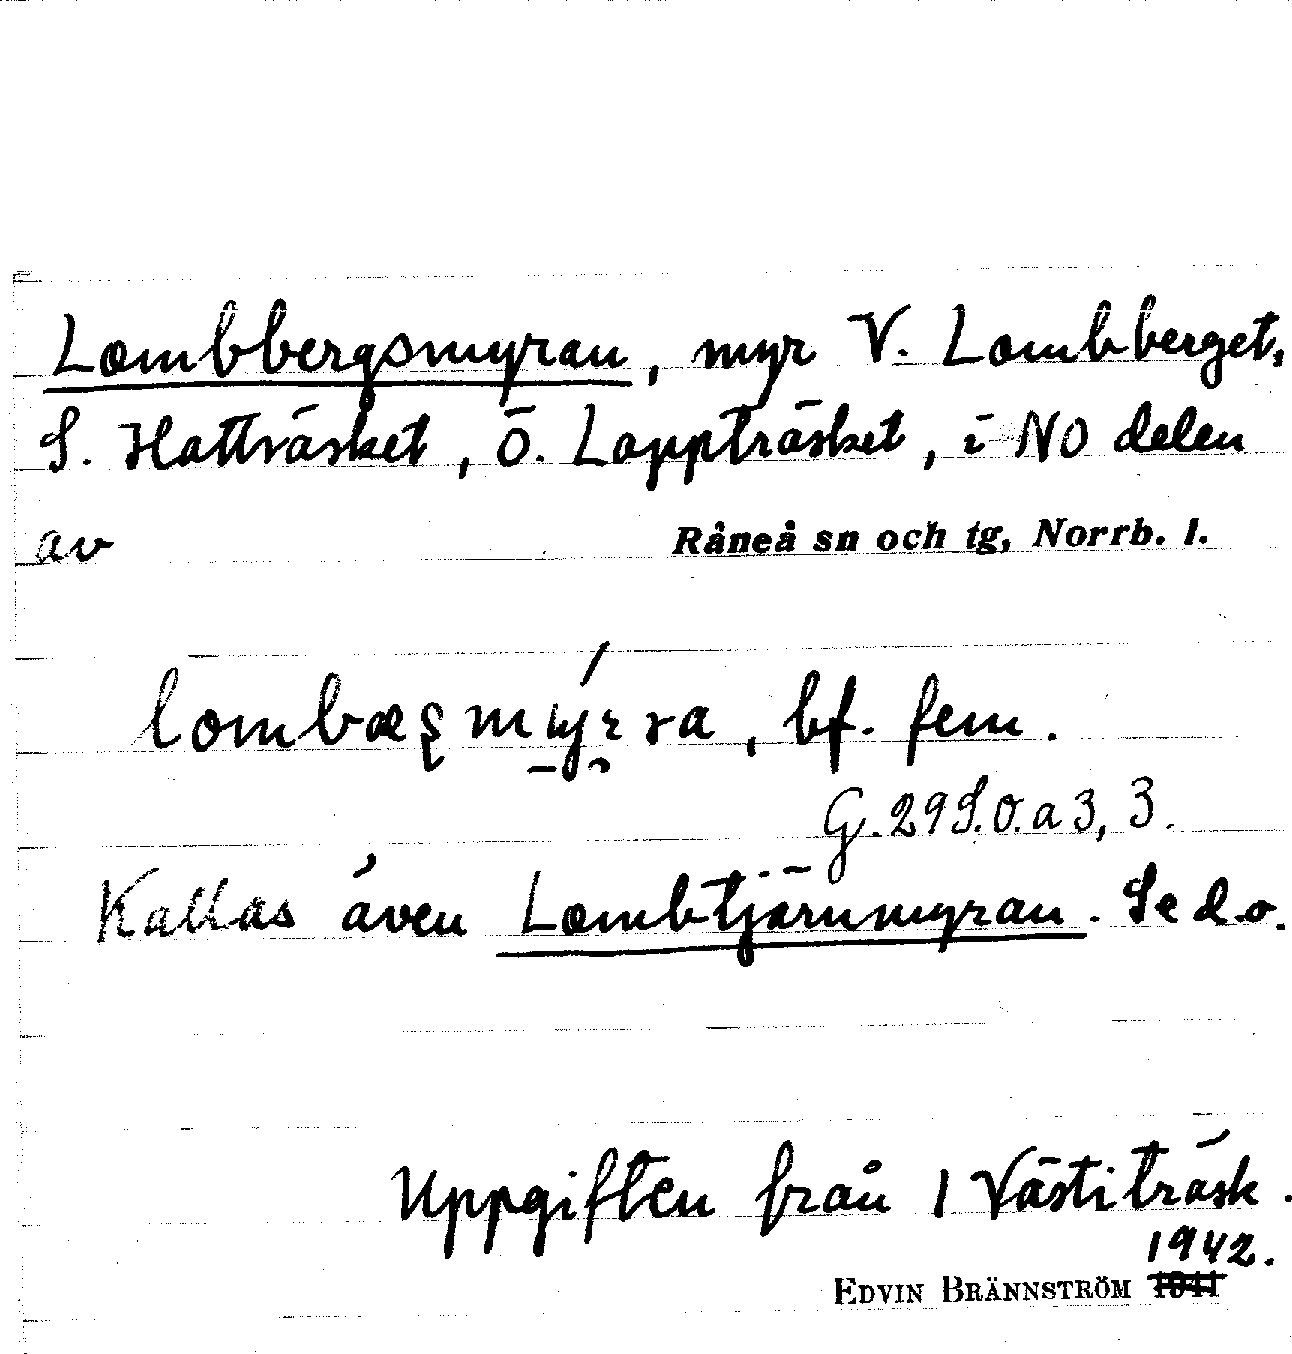 Lombbergsmyran, myr V. Lombberget,
S. Hatträsket, Ö. Lappträsket, i NO delen
av Råneå sn och tg, Norrb. l.
bf. fem.
G. 29 S.O. a 3, 3.
Kallas även Lombtjärnmyran. Se d.o.
Uppgiften från 1 Västiträsk.
1942.
EDVIN BRÄNNSTRÖM 1941